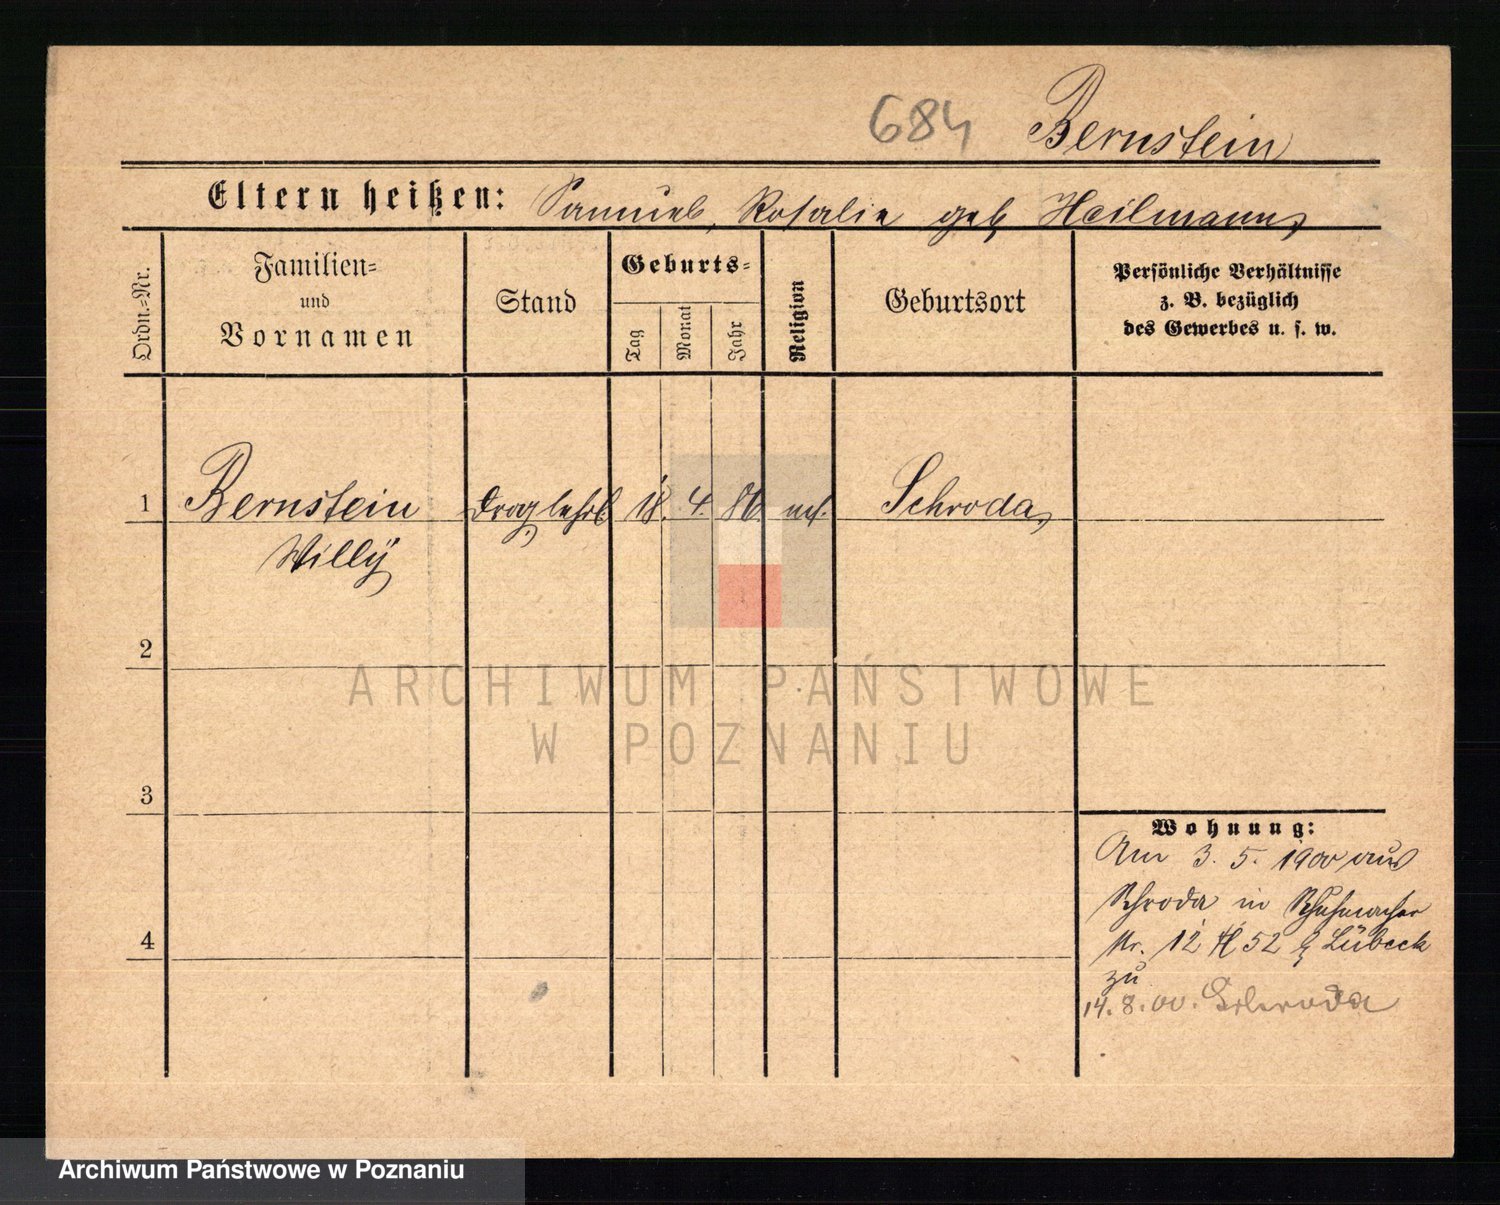 684 Bernstein
Eltern heißen: Samuel, Rosalie geb Heilmann
Ordn.=Nr.
Familien=
und
Vornamen
Stand
Geburts=
Tag
Monat
Jahr
Religion
Geburtsort
Persönliche Verhältnisse
z. B. bezüglich
des Gewerbes u. s. w.
1 Bernstein Droglehrl. 18. 4. 86. Schroda
Willy
2
3
4
Wohnung:
Am 3. 5. 1900 aus
Schroda in Schuhmacher
Str. 12 H 52 b Lübeck
zu
14. 8. 00. Schroda
ARCHIWUM PAŃSTWOWE
W POZNANIU
Archiwum Państwowe w Poznaniu